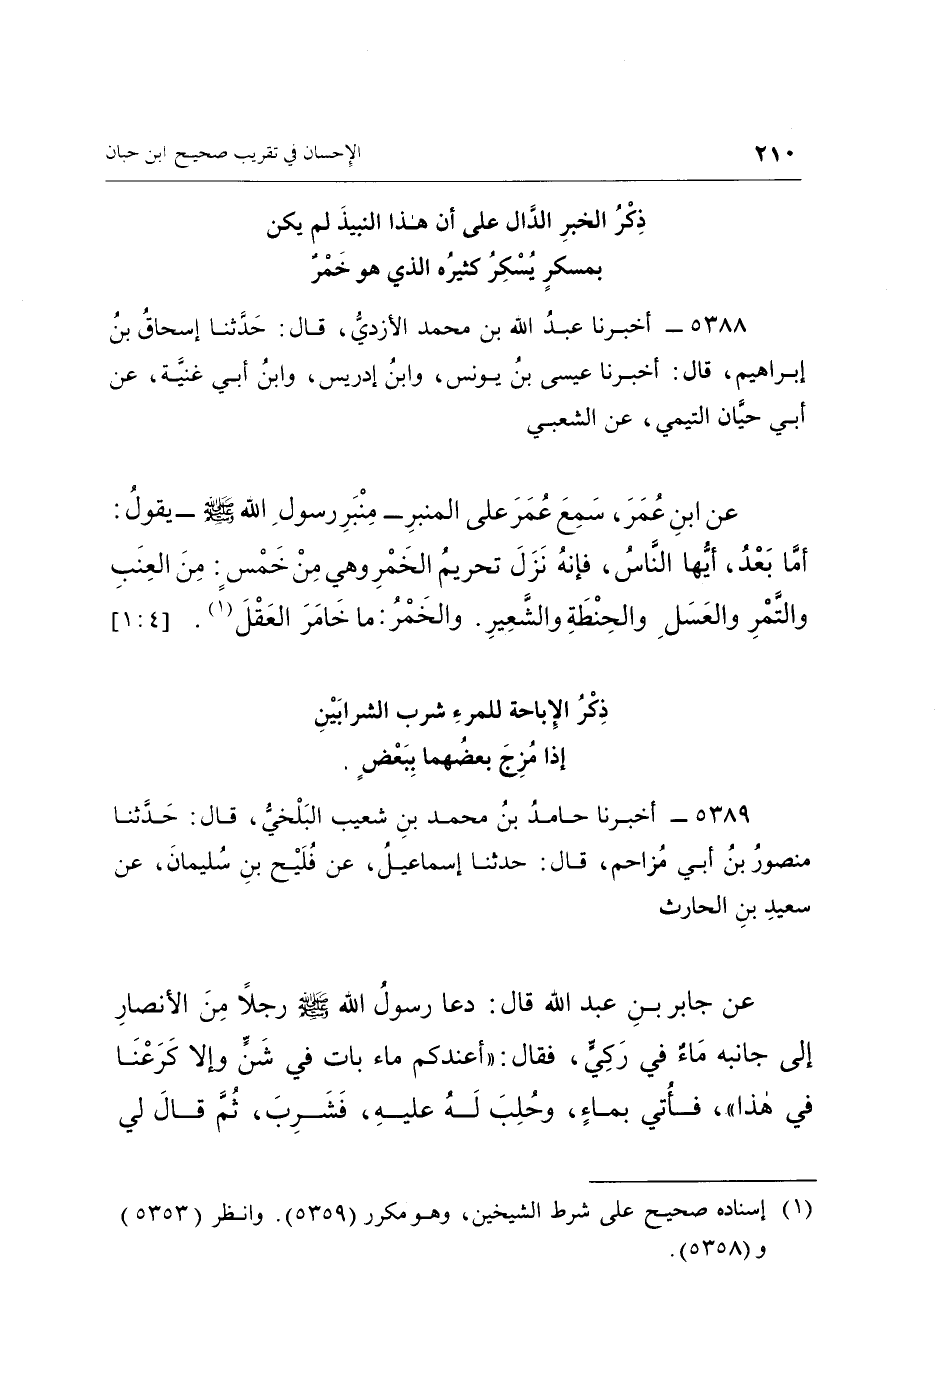 ٢١٠ الإحسان في تقريب صحيح ابن حبان
ذِكْرُ الخبرِ الدَّال على أن هـٰذا النبيذَ لم يكن
بمسكرٍ يُسْكِرُ كثيرُه الذي هو خَمْرٌ
٥٣٨٨ ـ أخبرنا عبدُ الله بن محمد الأزديُّ، قال: حَدَّثنا إسحاقُ بنُ
إبراهيم، قال: أخبرنا عيسى بنُ يونس، وابنُ إدريس، وابنُ أبي غنيَّة، عن
أبي حيَّان التيمي، عن الشعبي
عن ابنِ عُمَرَ، سَمِعَ عُمَرَ على المنبرِ ـ مِنْبَرِ رسولِ الله ﷺ ـ يقولُ:
أمَّا بَعْدُ، أيُّها النَّاسُ، فإنهُ نَزَلَ تحريمُ الخَمْرِ وهي مِنْ خَمْسٍ: مِنَ العِنَبِ
والتَّمْرِ والعَسَلِ والحِنْطَةِ والشَّعيرِ. والخَمْرُ: ما خَامَرَ العَقْلَ(١). [٤: ١]
ذِكْرُ الإِباحة للمرءِ شرب الشرابَيْنِ
إذا مُزِجَ بعضُهما بِبَعْضٍ.
٥٣٨٩ ـ أخبرنا حامدُ بنُ محمد بنِ شعيب البَلْخيُّ، قال: حَدَّثنا
منصورُ بنُ أبي مُزاحم، قال: حدثنا إسماعيلُ، عن فُلَيْح بنِ سُليمانَ، عن
سعيدِ بنِ الحارث
عن جابر بنِ عبد الله قال: دعا رسولُ الله ﷺ رجلاً مِنَ الأنصارِ
إلى جانبه مَاءٌ في رَكِيٍّ، فقال: «أعندكم ماء بات في شَنٍّ وإلا كَرَعْنَا
في هٰذا»، فأُتي بماءٍ، وحُلِبَ لَهُ عليهِ، فَشَرِبَ، ثُمَّ قالَ لي
(١) إسناده صحيح على شرط الشيخين، وهو مكرر (٥٣٥٩). وانظر (٥٣٥٣)
و (٥٣٥٨).